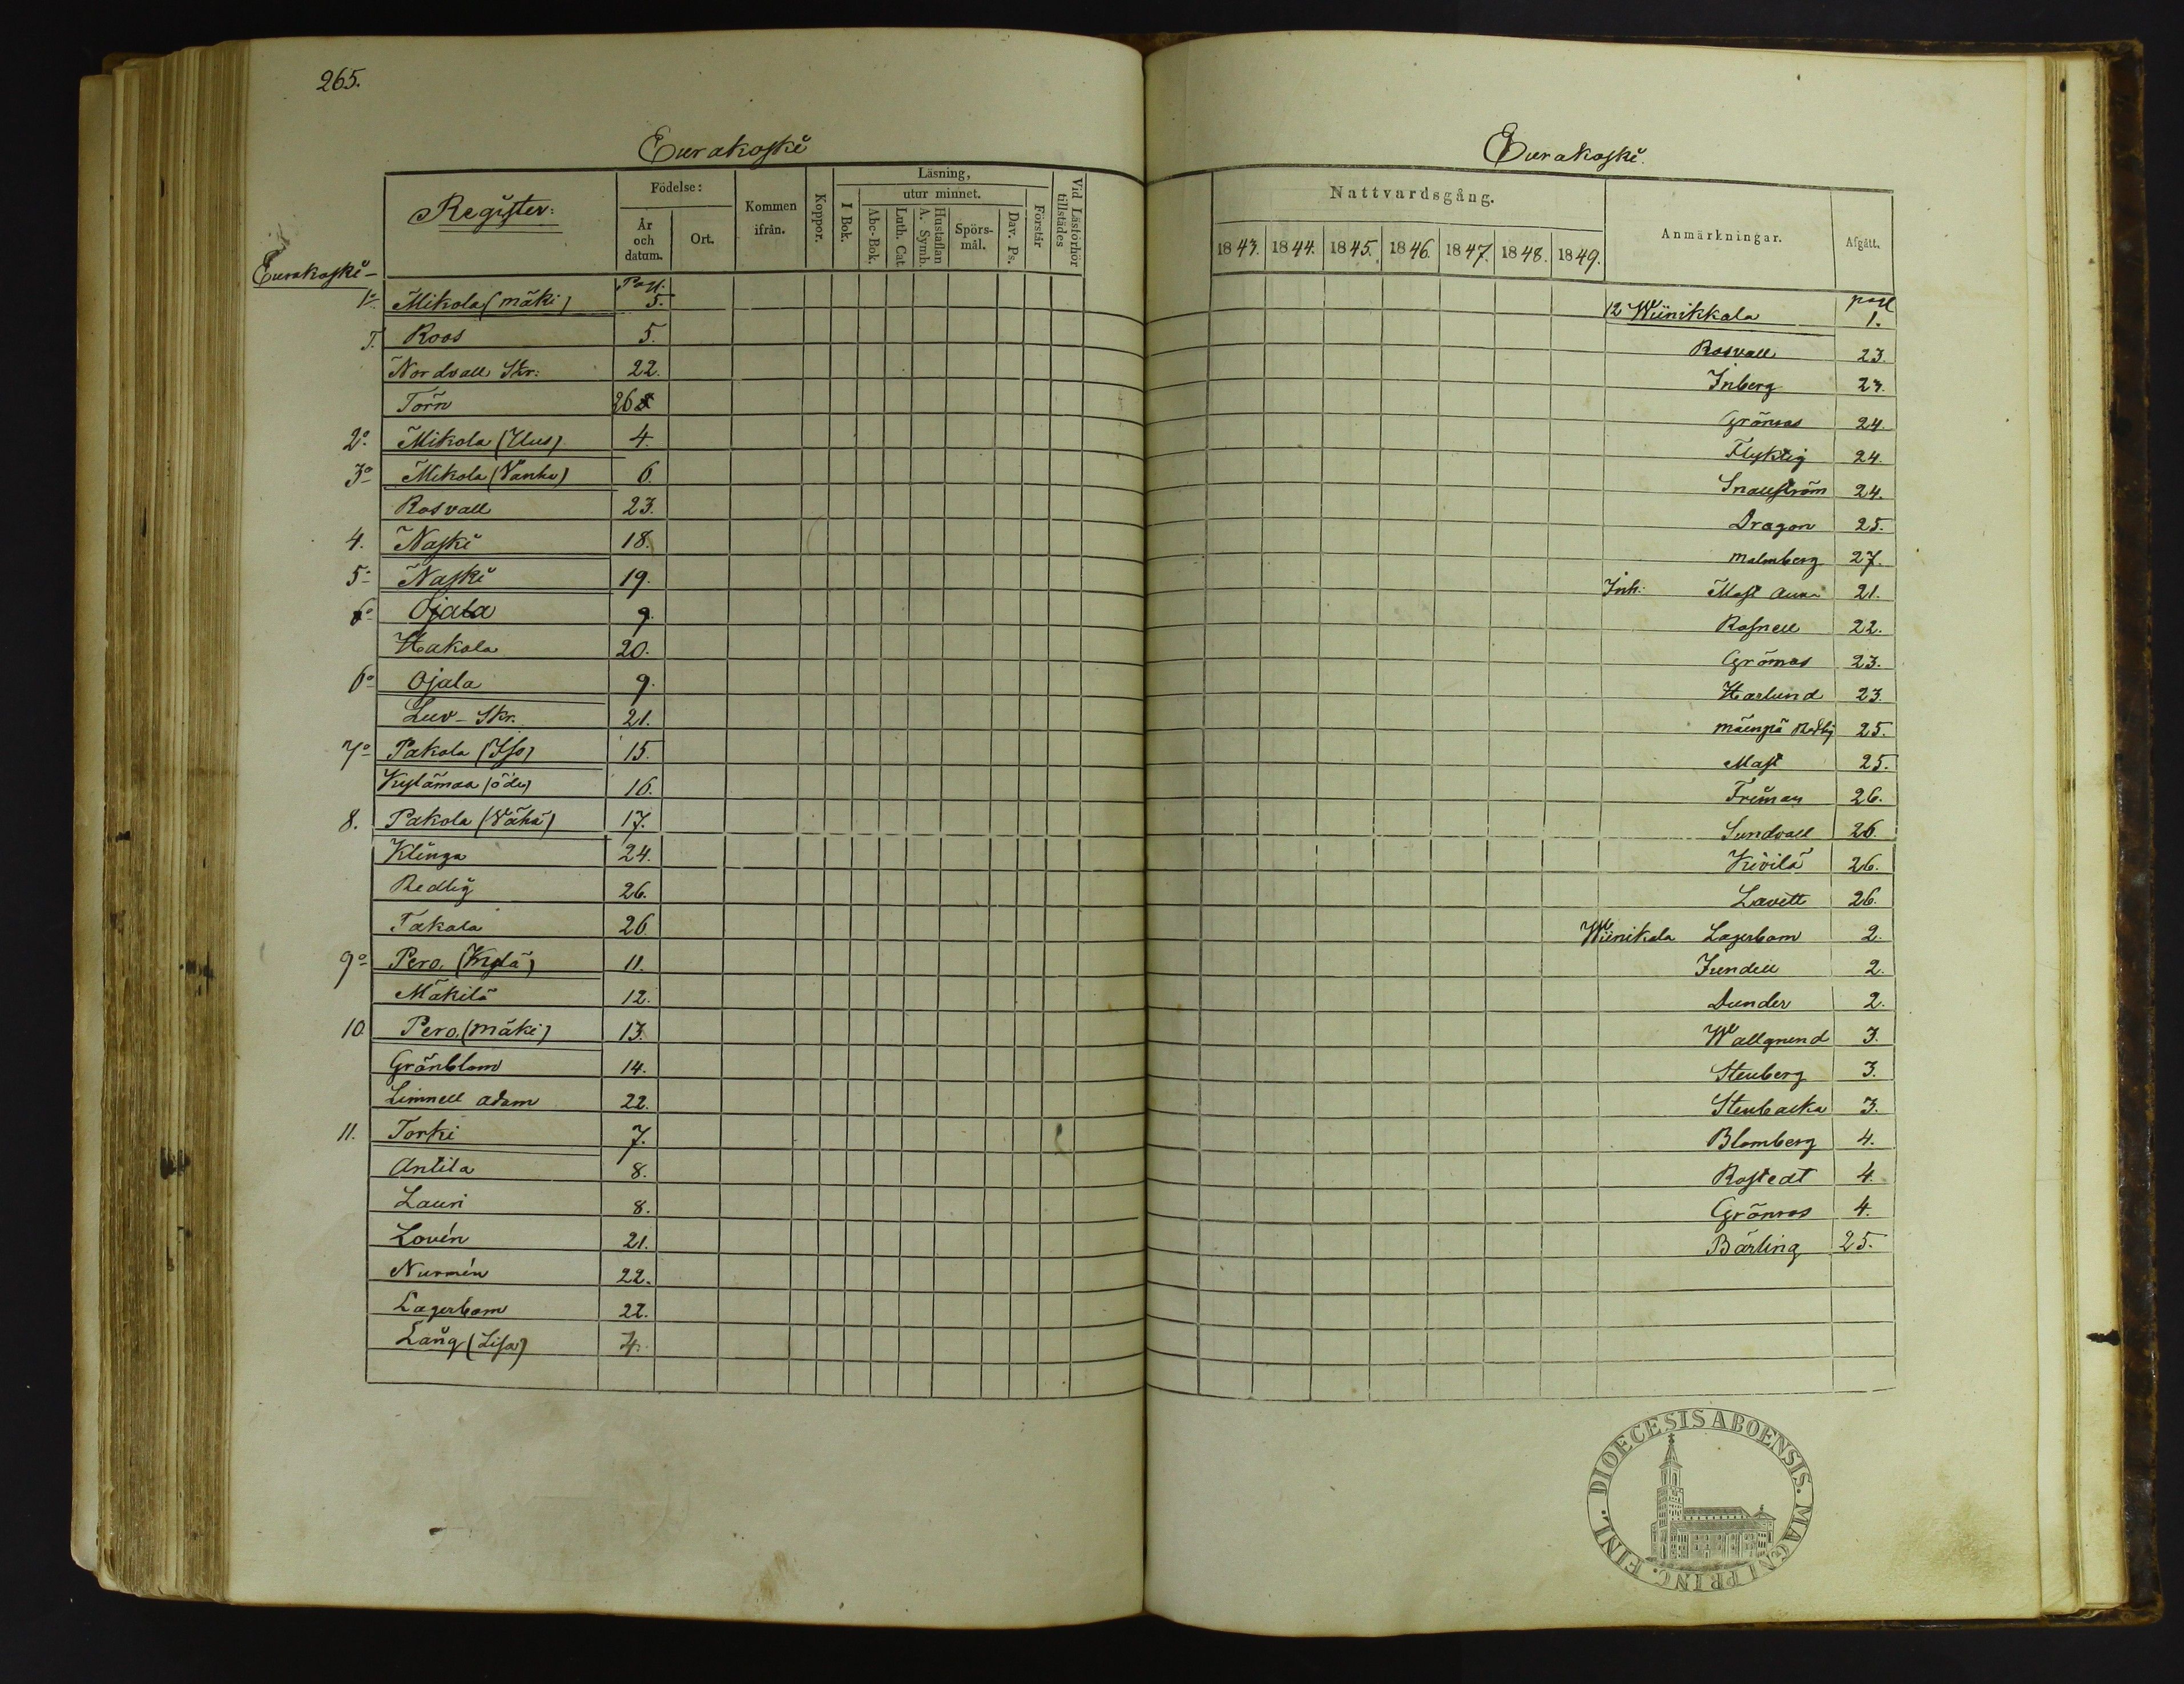 265.
Eurakoski
Register:
Födelse:
År och datum.
Ort.
Kommen ifrån.
Koppor.
Läsning,
I Bok.
utur minnet.
Abc-Bok.
Luth. Cat
Hustaflan A. Symb.
Spörs-mål.
Dav. Ps.
Förstår
Vid Läsförhör tillstädes
Eurakoski-
Pag.
1o Mikola (mäki) 5.
T. Roos 5.
Nordvall Skr: 22.
Törn 26
2o Mikola (Uus) 4.
3o Mikola (Vanha) 6.
Rosvall 23.
4. Naski 18.
5o Naski 19.
6o Ojala 9.
Hakola 20.
6o Ojala 9.
Luv- Skr. 21.
7o Pakola (Iso) 15.
Kylämaa (öde) 16.
8. Pakola (Vähä) 17.
Klinga 24.
Redlig 26.
Takala 26
9o Pero. (Kylä) 11.
Mäkilä 12.
10 Pero. (mäki) 13.
Grönblom 14.
Limnell Adam 22.
11. Torki 7.
Antila 8.
Lauri 8.
Lovén 21.
Nurmén 22.
Lagerbom 22.
Lång (Lisa) 4.
Eurakoski.
Nattvardsgång.
Anmärkningar.
Afgått.
1843. 1844. 1845. 1846. 1847. 1848. 1849.
pag
12 Wiinikkala 1.
Rosvall 23.
Inberg 23.
Grönroos 24.
Flyktig 24.
Snällström 24.
Dragon 25.
Malmberg 27.
Inh: Mast Anna 21.
Rosnell 22.
Grönroos 23.
Harlund 23.
Mäenpä Redlig 25.
Mast 25.
Friman 26.
Sundvall 26.
Kivilä 26.
Lavitt 26.
Wiinikala Lagerbom 2.
Jundell 2.
Dunder 2.
Wallgrend 3.
Stenberg 3.
Stenbacka 3.
Blomberg 4.
Rostedt 4.
Grönroos 4.
Bärling 25.
DIOECESIS ABOENSIS. MAGNI PRINC. FINL.